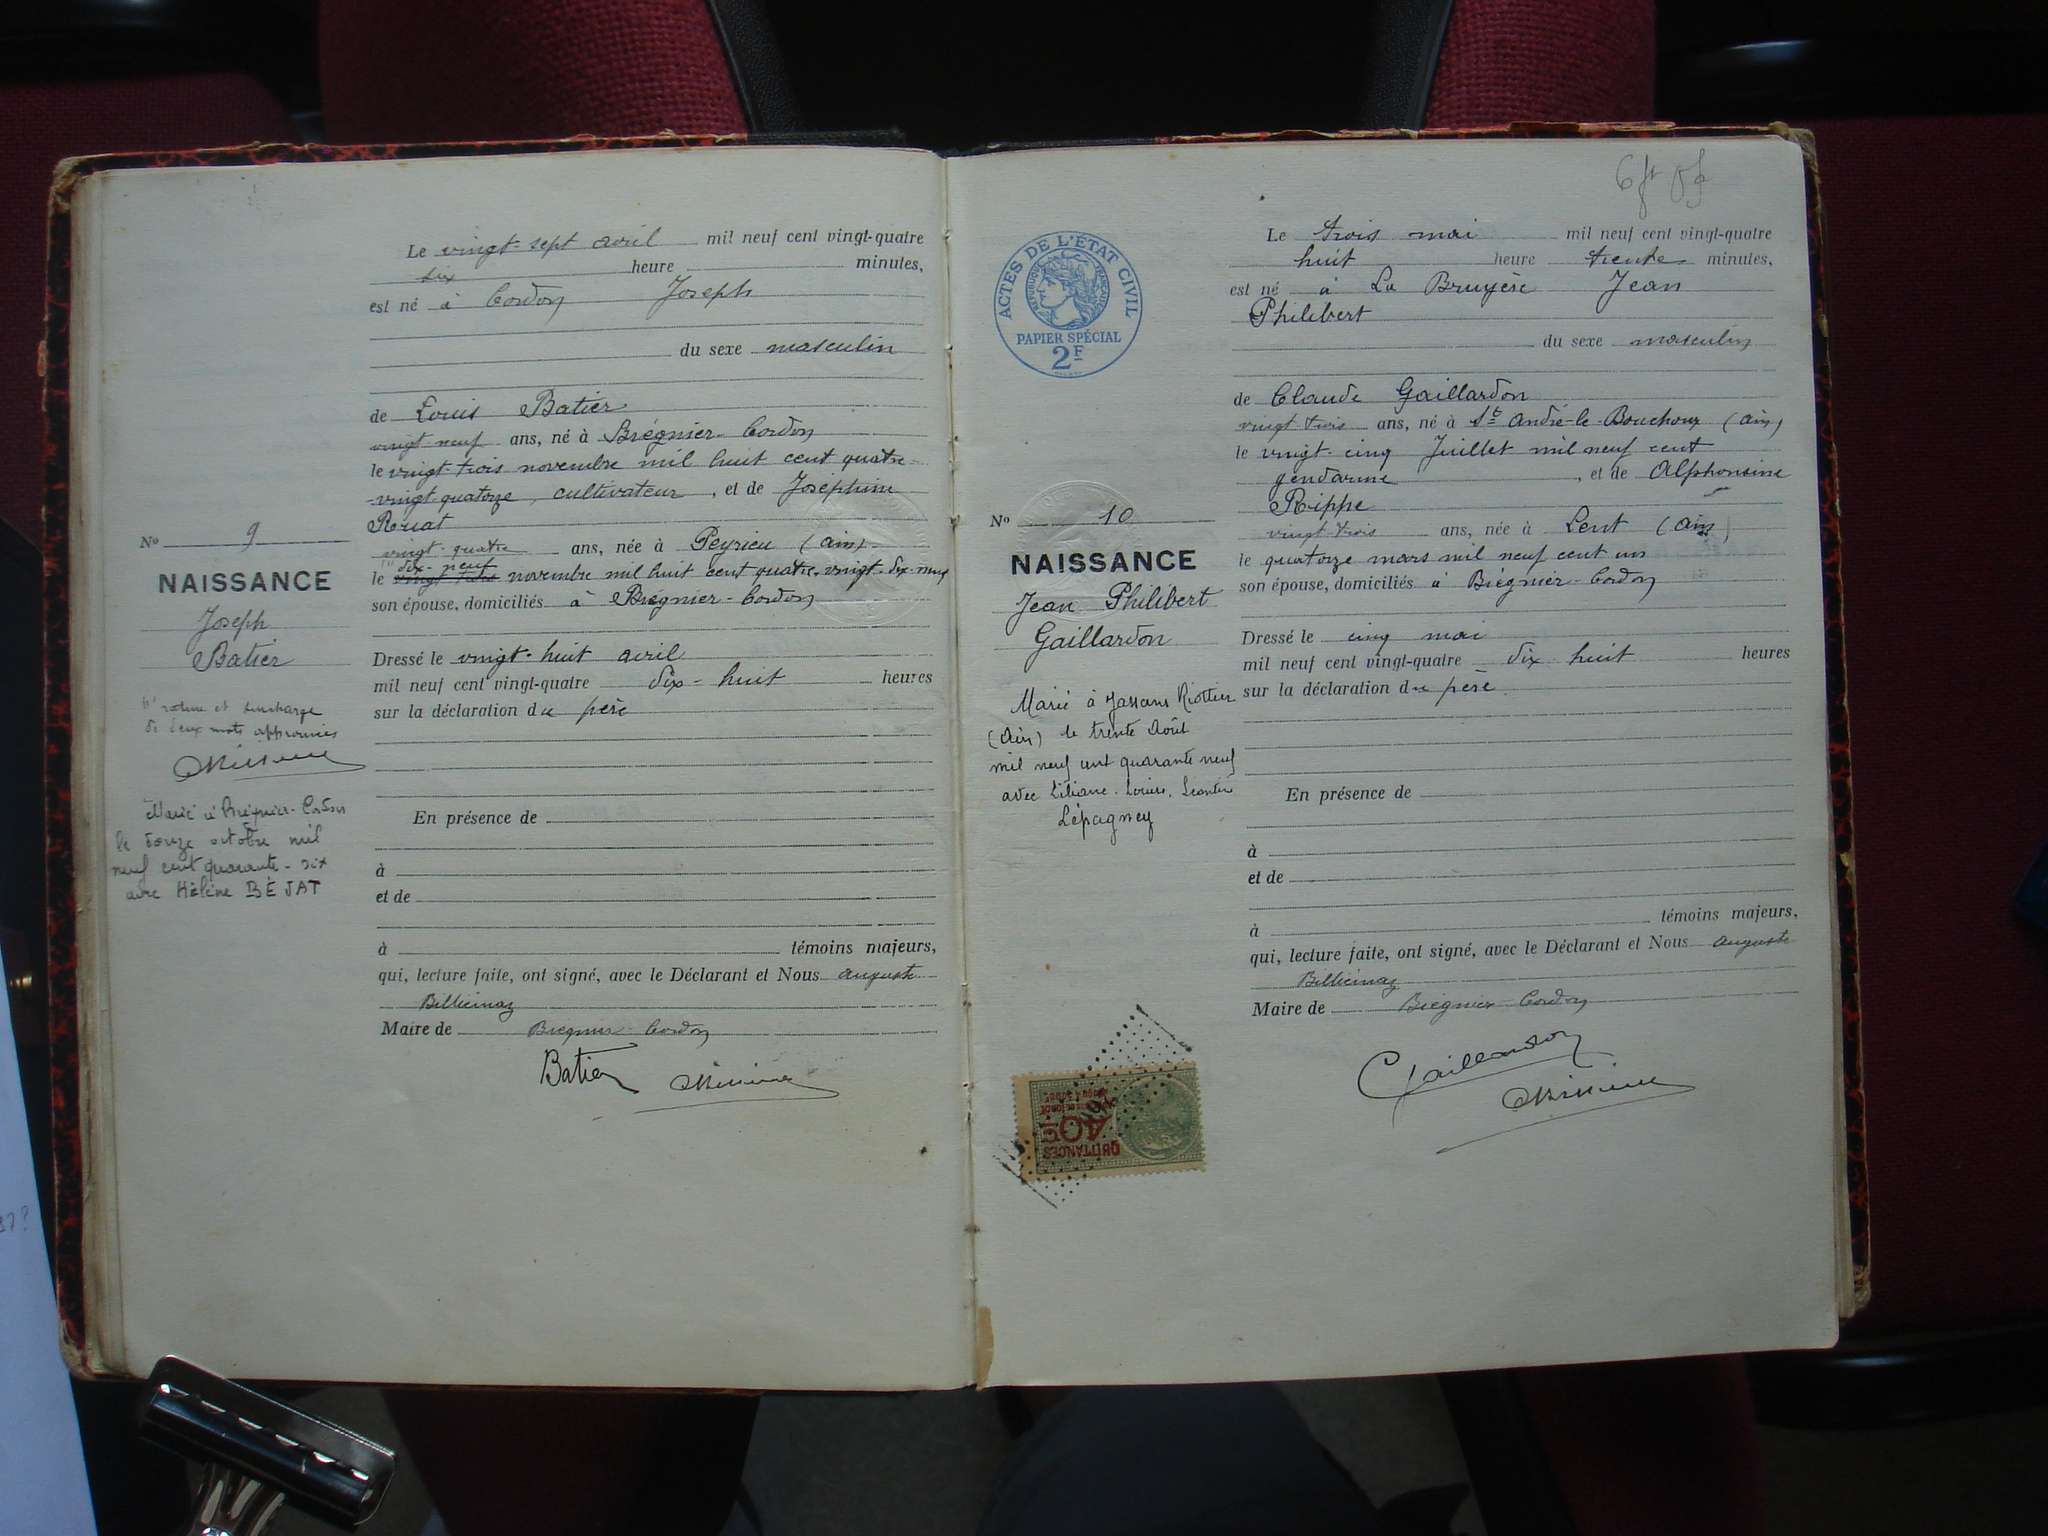 Le vingt-sept avril mil neuf cent vingt-quatre
six heure minutes,
est né à Cordon Joseph
du sexe masculin
de Louis Batier
vingt neuf ans, né à Brégnier-Cordon
le vingt-trois novembre mil huit cent quatre-
vingt quatorze, cultivateur, et de Joséphine
Ruat
vingt-quatre ans, née à Peyrieu (Ain)
dix-neuf
le vingt trois novembre mil huit cent quatre-vingt-dix-neuf
son épouse, domiciliés à Brégnier-Cordon
Dressé le vingt-huit avril
mil neuf cent vingt-quatre dix-huit heures
sur la déclaration du père
En présence de
à
et de
à témoins majeurs,
qui, lecture faite, ont signé, avec le Déclarant et Nous Auguste
Maire de Brégnier-Cordon
Batier
No 9
NAISSANCE
Joseph
Batier
rature et surcharge
de deux mots approuvées
Marié à Brégnier-Cordon
le douze octobre mil
neuf cent quarante-six
avec Hélène BÉJAT
ACTES DE L'ÉTAT CIVIL
RÉPUBLIQUE FRANÇAISE
PAPIER SPÉCIAL
2F
Le trois mai mil neuf cent vingt-quatre
huit heure trente minutes,
est né à La Bruyère Jean
Philibert
du sexe masculin
de Claude Gaillardon
vingt trois ans, né à St André-le-Bouchoux (Ain)
le vingt-cinq Juillet mil neuf cent
gendarme, et de Alphonsine
Rippe
vingt trois ans, née à Lent (Ain)
le quatorze mars mil neuf cent un
son épouse, domiciliés à Brégnier-Cordon
Dressé le cinq mai
mil neuf cent vingt-quatre dix huit heures
sur la déclaration du père.
En présence de
à
et de
à témoins majeurs,
qui, lecture faite, ont signé, avec le Déclarant et Nous Auguste
Maire de Brégnier-Cordon
Gaillardon
No 10
NAISSANCE
Jean Philibert
Gaillardon
Marié à Jassans Riottier
(Ain) le trente Août
mil neuf cent quarante neuf
avec Liliane. Louise. Léontine
Lépagney
QUITTANCES